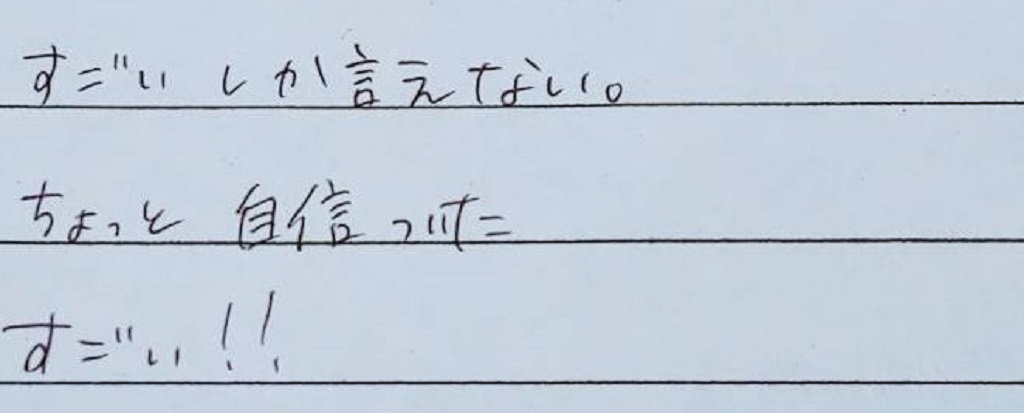 すごい しか言えてない。
ちょっと 自信ついた
すごい!!